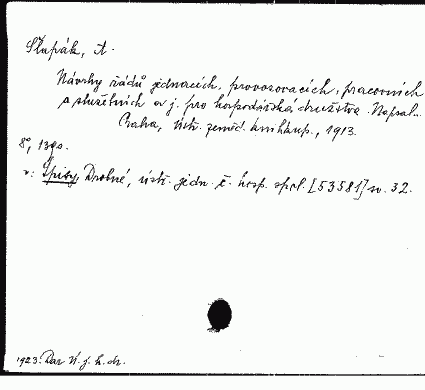 Štupák, A.
Návrhy řádů jednacích, provozovacích, pracovních
a služebních a j. pro hospodářská družstva. Napsal..
Praha, Ústř. zeměd. knihkup., 1913.
8°, 139 s.
v: Spisy, Drobné, ústř. jedn. č. hosp. spol. [53581] sv. 32.
1923: Dar Ú. j. h. dr.